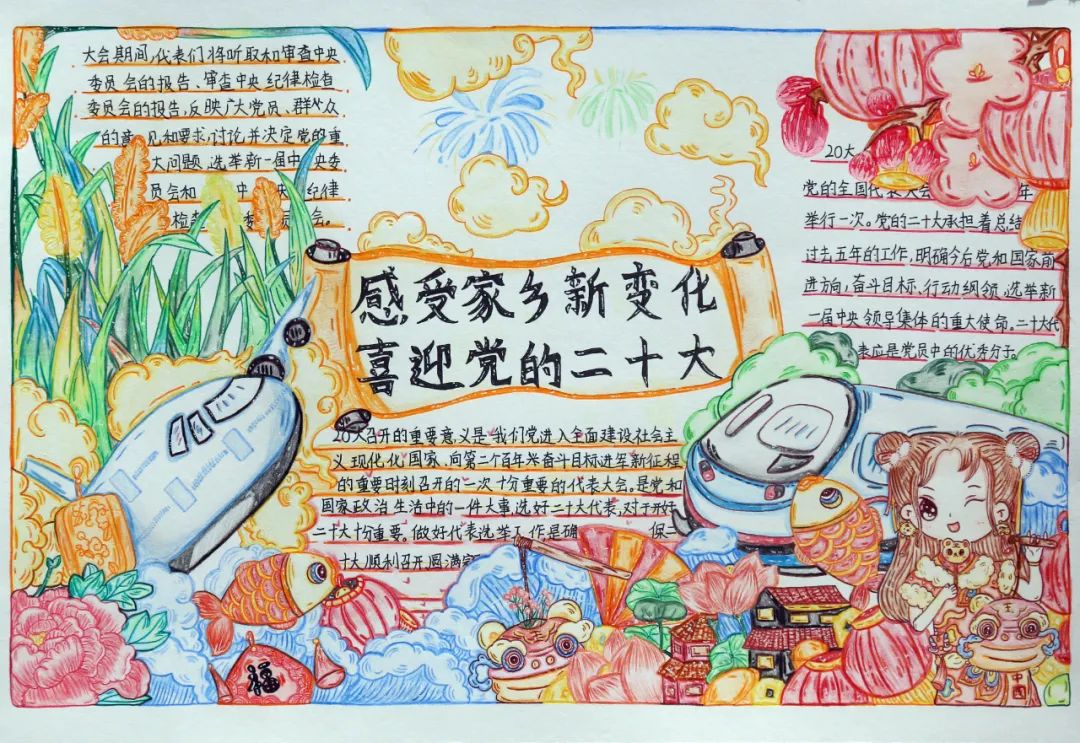 感受家乡新变化
喜迎党的二十大
大会期间,代表们将听取和审查中央
委员会的报告、审查中央纪律检查
委员会的报告,反映广大党员、群众
的意见和要求,讨论并决定党的重
大问题,选举新一届中央委
员会和 中央纪律
检查委 员会。
20大
党的全国代表大会 年
举行一次。党的二十大承担着总结
过去五年的工作,明确今后党和国家前
进方向,奋斗目标、行动纲领,选举新
一届中央领导集体的重大使命。二十大代
表应是党员中的优秀分子。
20大召开的重要意义是“我们党进入全面建设社会主
义现代化国家、向第二个百年奋斗目标进军新征程
的重要时刻召开的一次十分重要的代表大会。是党和
国家政治生活中的一件大事,选好二十大代表,对于开好
二十大十分重要,做好代表选举工作是确 保二
十大顺利召开圆满
福
中国